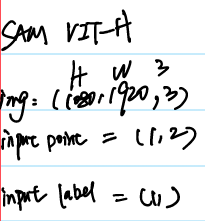 SAM VIT-H
H W 3
img: (1080, 1920, 3)
input point = (1, 2)
input label = (1,)